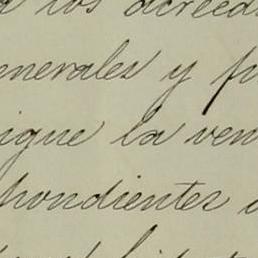 los acreed
enerales y p
igue la ven
pondientes